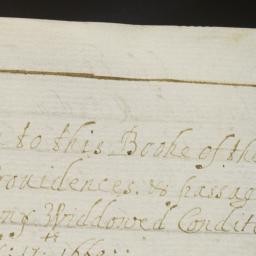 to this Booke of the
rouidences. & passag
my Widdowed Condit
17. 166